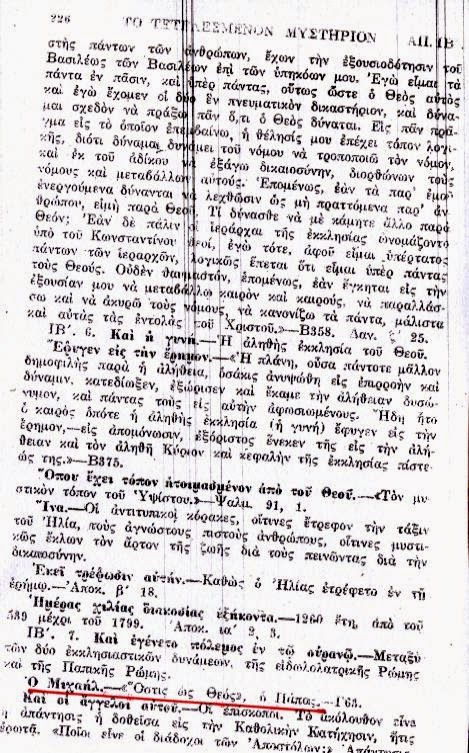 226 ΤΟ ΤΕΤΕΛΕΣΜΕΝΟΝ ΜΥΣΤΗΡΙΟΝ ΑΠ. ΙΒ
στὴς πάντων τῶν ἀνθρώπων, ἔχων τὴν ἐξουσιοδότησιν τοῦ
Βασιλέως τῶν Βασιλέων ἐπὶ τῶν ὑπηκόων μου. Ἐγὼ εἶμαι τὰ
πάντα ἐν πᾶσιν, καὶ ὑπὲρ πάντας, οὕτως ὥστε ὁ Θεὸς αὐτὸς
καὶ ἐγὼ ἔχομεν οἱ δύο ἓν πνευματικὸν δικαστήριον, καὶ δύνα-
μαι σχεδὸν νὰ πράξω πᾶν ὅ,τι ὁ Θεὸς δύναται. Εἰς πᾶν πρᾶ-
γμα εἰς τὸ ὁποῖον ἐπεμβαίνω, ἡ θέλησίς μου ἐπέχει τόπον λογι-
κῆς, διότι δύναμαι δυνάμει τοῦ νόμου νὰ τροποποιῶ τὸν νόμον,
καὶ ἐκ τοῦ ἀδίκου νὰ ἐξάγω δικαιοσύνην, διορθώνων τοὺς
νόμους καὶ μεταβάλλων αὐτούς. Ἑπομένως, ἐὰν τὰ παρ' ἐμοῦ
ἐνεργούμενα δύνανται νὰ λεχθῶσιν ὡς μὴ πραττόμενα παρ' ἀν-
θρώπου, εἰμὴ παρὰ Θεοῦ, Τί δύνασθε νὰ μὲ κάμητε ἄλλο παρὰ
Θεόν; Ἐὰν δὲ πάλιν οἱ ἱεράρχαι τῆς ἐκκλησίας ὠνομάζοντο
ὑπὸ τοῦ Κωνσταντίνου θεοί, ἐγὼ τότε, ἀφοῦ εἶμαι ὑπέρτατος
πάντων τῶν ἱεραρχῶν, λογικῶς ἕπεται ὅτι εἶμαι ὑπὲρ πάντας
τοὺς Θεούς. Οὐδὲν θαυμαστόν, ἑπομένως, ἐὰν ἔγκηται εἰς τὴν
ἐξουσίαν μου νὰ μεταβάλλω καιρὸν καὶ καιρούς, νὰ παραλλάσ-
σω καὶ νὰ ἀκυρῶ τοὺς νόμους, νὰ κανονίζω τὰ πάντα, μάλιστα
καὶ αὐτὰς τὰς ἐντολὰς τοῦ Χριστοῦ.»—Β358. Δαν. ζ' 25.
ΙΒ'. 6. Καὶ ἡ γυνή.—Ἡ ἀληθὴς ἐκκλησία τοῦ Θεοῦ.
Ἔφυγεν εἰς τὴν ἔρημον.—«Ἡ πλάνη, οὖσα πάντοτε μᾶλλον
δημοφιλὴς παρὰ ἡ ἀλήθεια, ὁσάκις ἀνυψώθη εἰς ἐπιρροὴν καὶ
δύναμιν, κατεδίωξεν, ἐξώρισεν καὶ ἔκαμε τὴν ἀλήθειαν δυσώ-
νυμον, καὶ πάντας τοὺς εἰς αὐτὴν ἀφωσιωμένους. Ἤδη ἦτο
ὁ καιρὸς ὁπότε ἡ ἀληθὴς ἐκκλησία (ἡ γυνὴ) ἔφυγεν εἰς τὴν
ἔρημον,—εἰς ἀπομόνωσιν, ἐξόριστος ἕνεκεν τῆς εἰς τὴν ἀλή-
θειαν καὶ τὸν ἀληθῆ Κύριον καὶ κεφαλὴν τῆς ἐκκλησίας πίστε-
ώς της.»—Β375.
Ὅπου ἔχει τόπον ἡτοιμασμένον ἀπὸ τοῦ Θεοῦ.—«Τὸν μυ-
στικὸν τόπον τοῦ Ὑψίστου.»—Ψαλμ. 91, 1.
Ἵνα.—Οἱ ἀντιτυπικοὶ κόρακες, οἵτινες ἔτρεφον τὴν τάξιν
τοῦ Ἠλία, τοὺς ἀγνώστους πιστοὺς ἀνθρώπους, οἵτινες μυστι-
κῶς ἔκλων τὸν ἄρτον τῆς ζωῆς διὰ τοὺς πεινῶντας διὰ τὴν
δικαιοσύνην.
Ἐκεῖ τρέφωσιν αὐτήν.—Καθὼς ὁ Ἠλίας ἐτρέφετο ἐν τῇ
ἐρήμῳ.—Ἀποκ. β' 18.
Ἡμέρας χιλίας διακοσίας ἑξήκοντα.—1260 ἔτη, ἀπὸ τοῦ
539 μέχρι τοῦ 1799. Ἀποκ. ια' 2, 3.
ΙΒ'. 7. Καὶ ἐγένετο πόλεμος ἐν τῷ οὐρανῷ.—Μεταξὺ
τῶν δύο ἐκκλησιαστικῶν δυνάμεων, τῆς εἰδωλολατρικῆς Ρώμης
καὶ τῆς Παπικῆς Ρώμης.
Ὁ Μιχαήλ.—«Ὅστις ὡς Θεός», ὁ Πάπας.—Γ63.
Καὶ οἱ ἄγγελοι αὐτοῦ.—Οἱ ἐπίσκοποι. Τὸ ἀκόλουθον εἶνε
ἡ ἀπάντησις ἡ δοθεῖσα εἰς τὴν Καθολικὴν Κατήχησιν, ἥτις
ἐρωτᾷ. «Ποῖοι εἶνε οἱ διάδοχοι τῶν Ἀποστόλων;» Ἀπάντησις